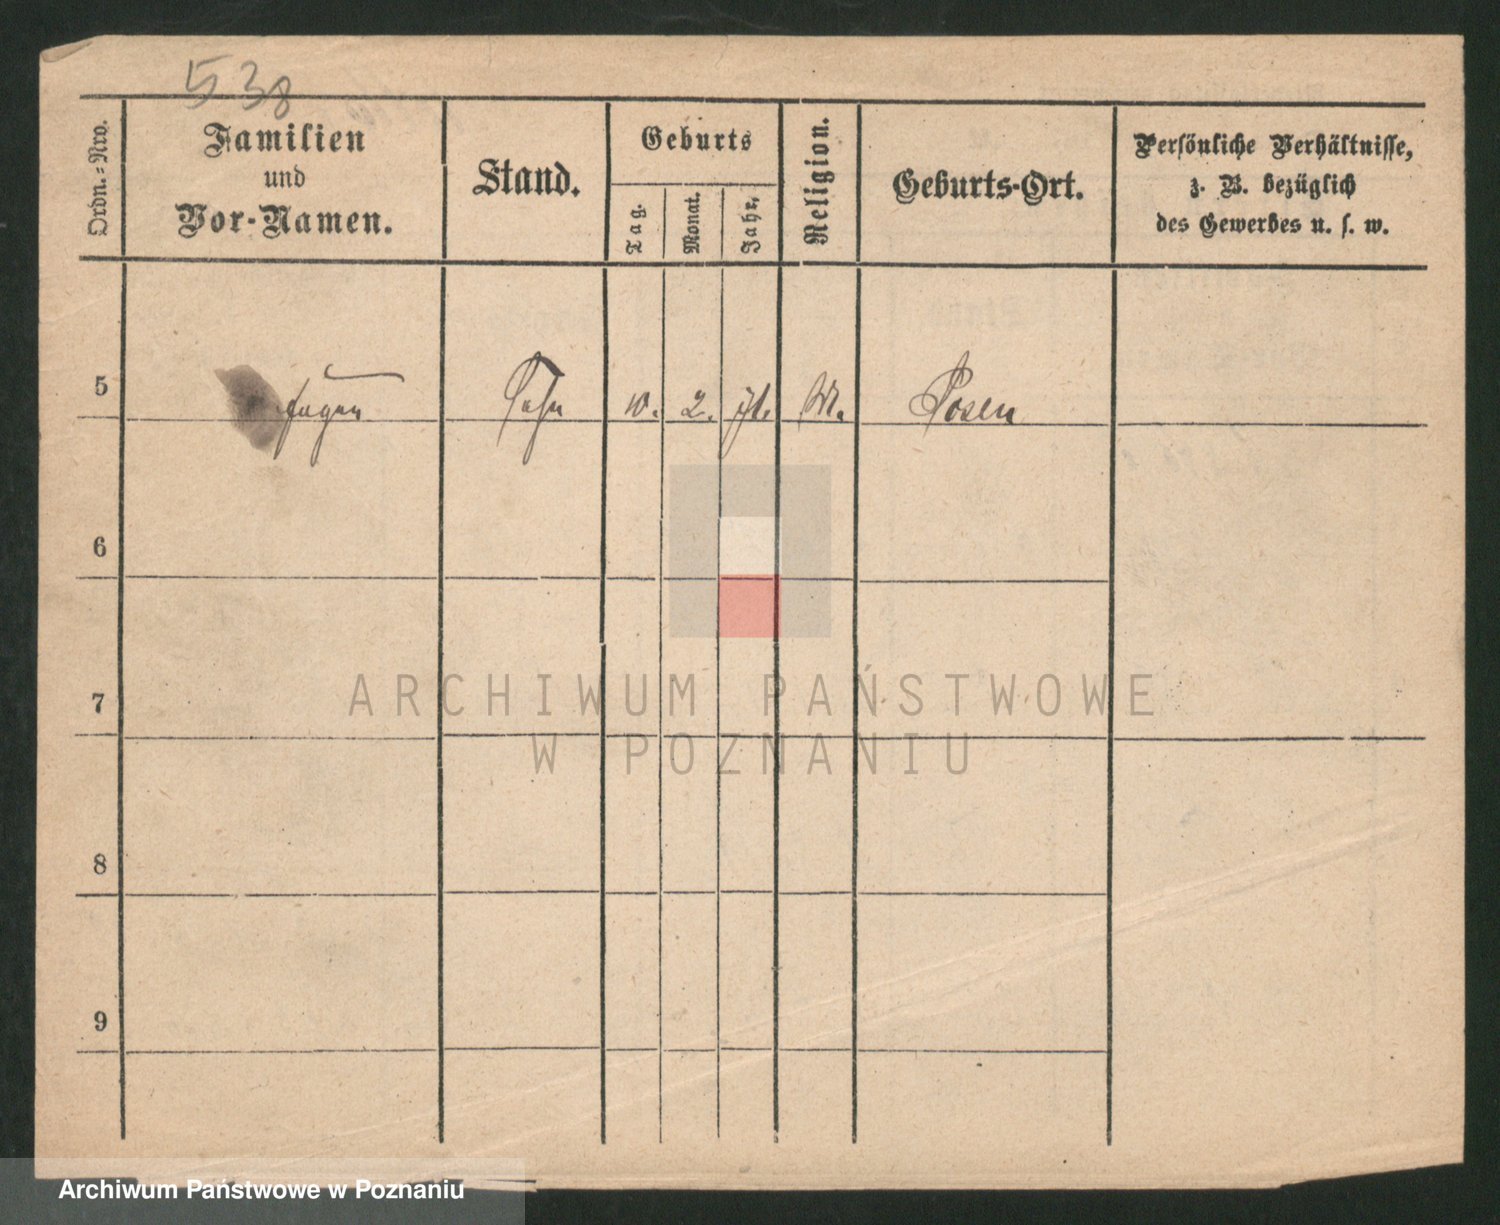 538
Ordn.-Nro.
Familien
und
Vor-Namen.
Stand.
Geburts
Tag.
Monat.
Jahr.
Religion.
Geburts-Ort.
Persönliche Verhältnisse,
z. B. bezüglich
des Gewerbes u. s. w.
5
Sohn
2.
Posen
6
7
8
9
ARCHIWUM PAŃSTWOWE
W POZNANIU
Archiwum Państwowe w Poznaniu